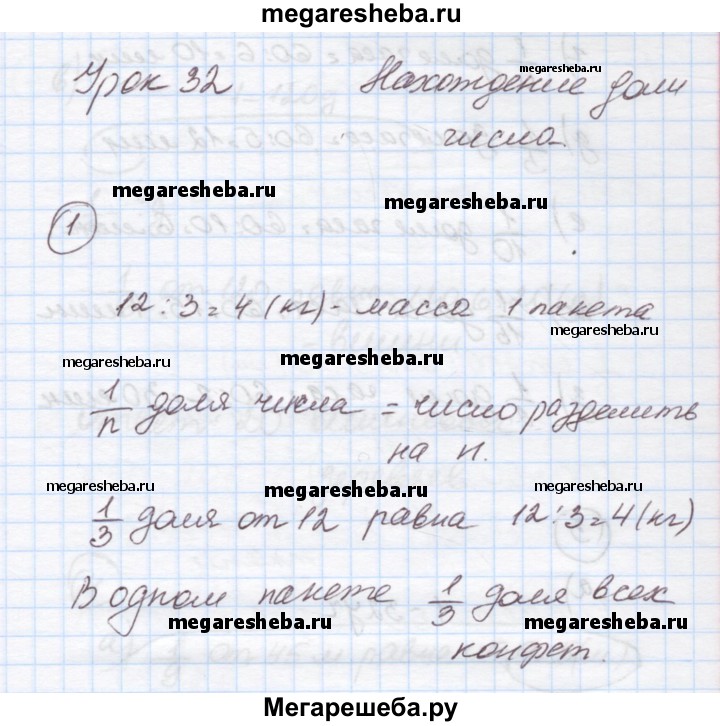 megaresheba.ru
Урок 32 Нахождение доли
megaresheba.ru
числа.
megaresheba.ru
megaresheba.ru
1
12 : 3 = 4 (кг) - масса 1 пакета
megaresheba.ru
megaresheba.ru
megaresheba.ru
1/n доля числа = число разделить
на n.
megaresheba.ru
megaresheba.ru
megaresheba.ru
1/3 доля от 12 равна 12 : 3 = 4 (кг)
В одном пакете 1/3 доля всех
megaresheba.ru
megaresheba.ru
конфет.
Мегарешеба.ру